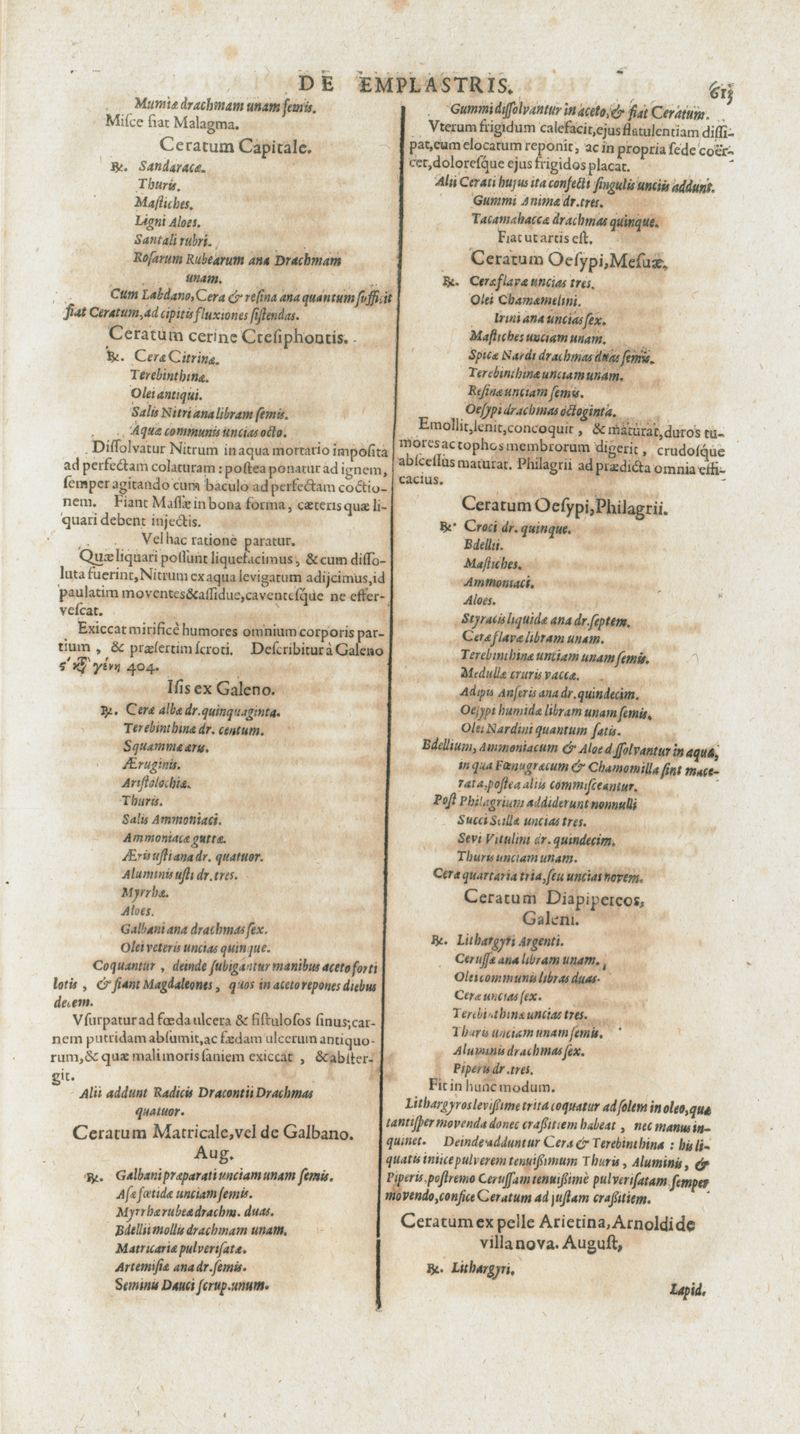 DE EMPLASTRIS. 613
Mumiæ drachmam unam ſemis.
Miſce fiat Malagma.
Ceratum Capitale.
℞. Sandaracæ.
Thuris.
Maſtiches.
Ligni Aloes.
Santali rubri.
Roſarum Rubearum ana Drachmam
unam.
Cum Labdano, Cera & reſina ana quantum ſuffi,it
fiat Ceratum, ad cipitis fluxiones ſiſtendas.
Ceratum cerine Cteſiphontis.
℞. Ceræ Citrinæ.
Terebinthinæ.
Olei antiqui.
Salis Nitri ana libram ſemis.
Aquæ communis uncias octo.
Diſſolvatur Nitrum in aqua mortario impoſita
ad perfectam colaturam : poſtea ponatur ad ignem,
ſemper agitando cum baculo ad perfectam coctio-
nem. Fiant Maſſæ in bona forma, cæteris quæ li-
quari debent injectis.
Vel hac ratione paratur.
Quæ liquari poſſunt liquefacimus, & cum diſſo-
luta fuerint, Nitrum ex aqua levigatum adijcimus, id
paulatim moventes & aſſidue, caventeſque ne effer-
veſcat.
Exiccat mirificè humores omnium corporis par-
tium, & præſertim ſcroti. Deſcribitur à Galeno
γένη 404.
Iſis ex Galeno.
℞. Ceræ albæ dr. quinquaginta.
Terebinthinæ dr. centum.
Squammæ æris.
Æruginis.
Ariſtolochiæ.
Thuris.
Salis Ammoniaci.
Ammoniacæ guttæ.
Æris uſti ana dr. quatuor.
Aluminis uſti dr. tres.
Myrrhæ.
Aloes.
Galbani ana drachmas ſex.
Olei veteris uncias quinque.
Coquantur, deinde ſubigantur manibus aceto forti
lotis, & fiant Magdaleones, quos in aceto repones diebus
decem.
Vſurpatur ad fœda ulcera & fiſtuloſos ſinus; car-
nem putridam abſumit, ac fædam ulcerum antiquo-
rum, & quæ mali moris ſaniem exiccat, & abſter-
git.
Alii addunt Radicis Dracontii Drachmas
quatuor.
Ceratum Matricale, vel de Galbano.
Aug.
℞. Galbani præparati unciam unam ſemis.
Aſæ fœtidæ unciam ſemis.
Myrrhæ rubeæ drachm. duas.
Bdellii mollis drachmam unam.
Matricariæ pulveriſatæ.
Artemiſiæ ana dr. ſemis.
Seminis Dauci ſcrup. unum.
Gummi diſſolvantur in aceto, & fiat Ceratum.
Vterum frigidum calefacit, ejus flatulentiam diſſi-
pat, eum elocatum reponit, ac in propria ſede coër-
cet, doloreſque ejus frigidos placat.
Alii Cerati hujus ita confecti ſingulis unciis addunt.
Gummi Animæ dr. tres.
Tacamahaccæ drachmas quinque.
Fiat ut artis eſt.
Ceratum Oeſypi, Meſuæ.
℞. Ceræ flavæ uncias tres.
Olei Chamæmelini.
Irini ana uncias ſex.
Maſtiches unciam unam.
Spicæ Nardi drachmas duas ſemis.
Terebinthinæ unciam unam.
Reſinæ unciam ſemis.
Oeſypi drachmas octoginta.
Emollit, lenit, concoquit, & maturat, duros tu-
mores ac tophos membrorum digerit, crudoſque
abſceſſus maturat. Philagrii ad prædicta omnia effi-
cacius.
Ceratum Oeſypi, Philagrii.
℞. Croci dr. quinque.
Bdellii.
Maſtiches.
Ammoniaci.
Aloes.
Styracis liquidæ ana dr. ſeptem.
Ceræ flavæ libram unam.
Terebinthinæ unciam unam ſemis.
Medullæ cruris vaccæ.
Adipis Anſeris ana dr. quindecim.
Oeſypi humidæ libram unam ſemis.
Olei Nardini quantum ſatis.
Bdellium, Ammoniacum & Aloe dſſolvantur in aqua,
in qua Fœnugræcum & Chamomilla ſint mace-
rata, poſtea aliis commiſceantur.
Poſt Philagrium addiderunt nonnulli
Succi Scillæ uncias tres.
Sevi Vitulini dr. quindecim.
Thuris unciam unam.
Ceræ quartaria tria, ſeu uncias novem.
Ceratum Diapipereos,
Galeni.
℞. Lithargyri Argenti.
Ceruſſæ ana libram unam.
Olei communis libras duas.
Ceræ uncias ſex.
Terebinthinæ uncias tres.
Thuris unciam unam ſemis.
Aluminis drachmas ſex.
Piperis dr. tres.
Fit in hunc modum.
Lithargyros leviſſime trita coquatur ad ſolem in oleo, quæ
tantiſper movenda donec craſſitiem habeat, nec manus in-
quinet. Deinde adduntur Cera & Terebinthina : his li-
quatis iniice pulverem tenuiſſimum Thuris, Aluminis, &
Piperis, poſtremo Ceruſſam tenuiſſimè pulveriſatam ſemper
movendo, confice Ceratum ad juſtam craſſitiem.
Ceratum ex pelle Arietina, Arnoldi de
villa nova. Auguſt,
℞. Lithargyri.
Lapid.